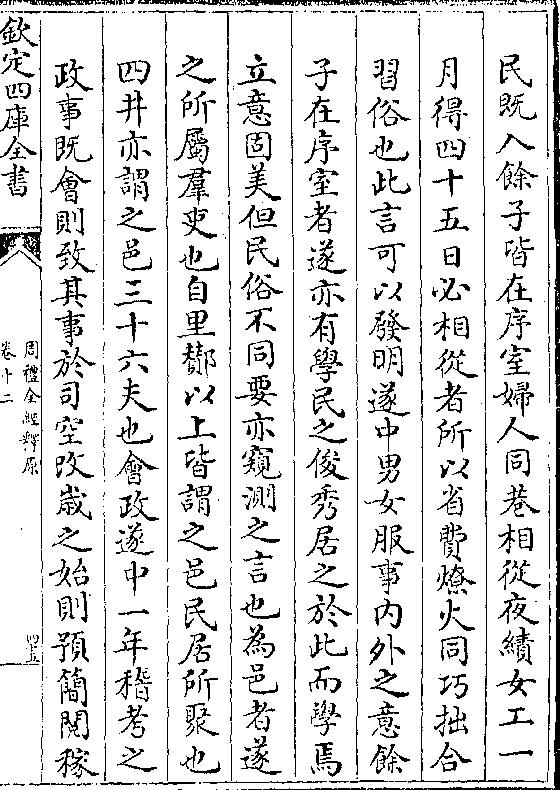 民既入餘子皆在序室婦人同巷相從夜績女工一
月得四十五日必相從者所以省費燎火同巧拙合
習俗也此言可以發明遂中男女服事内外之意餘
子在序室者遂亦有學民之俊秀居之於此而學焉
立意固美但民俗不同要亦窺測之言也為邑者遂
之所屬羣吏也自里酇以上皆謂之邑民居所聚也
四井亦謂之邑三十六夫也會政遂中一年稽考之
政事既會則致其事於司空改歲之始則預簡閱稼
欽定四庫全書
周禮全經釋原
卷十二
四五